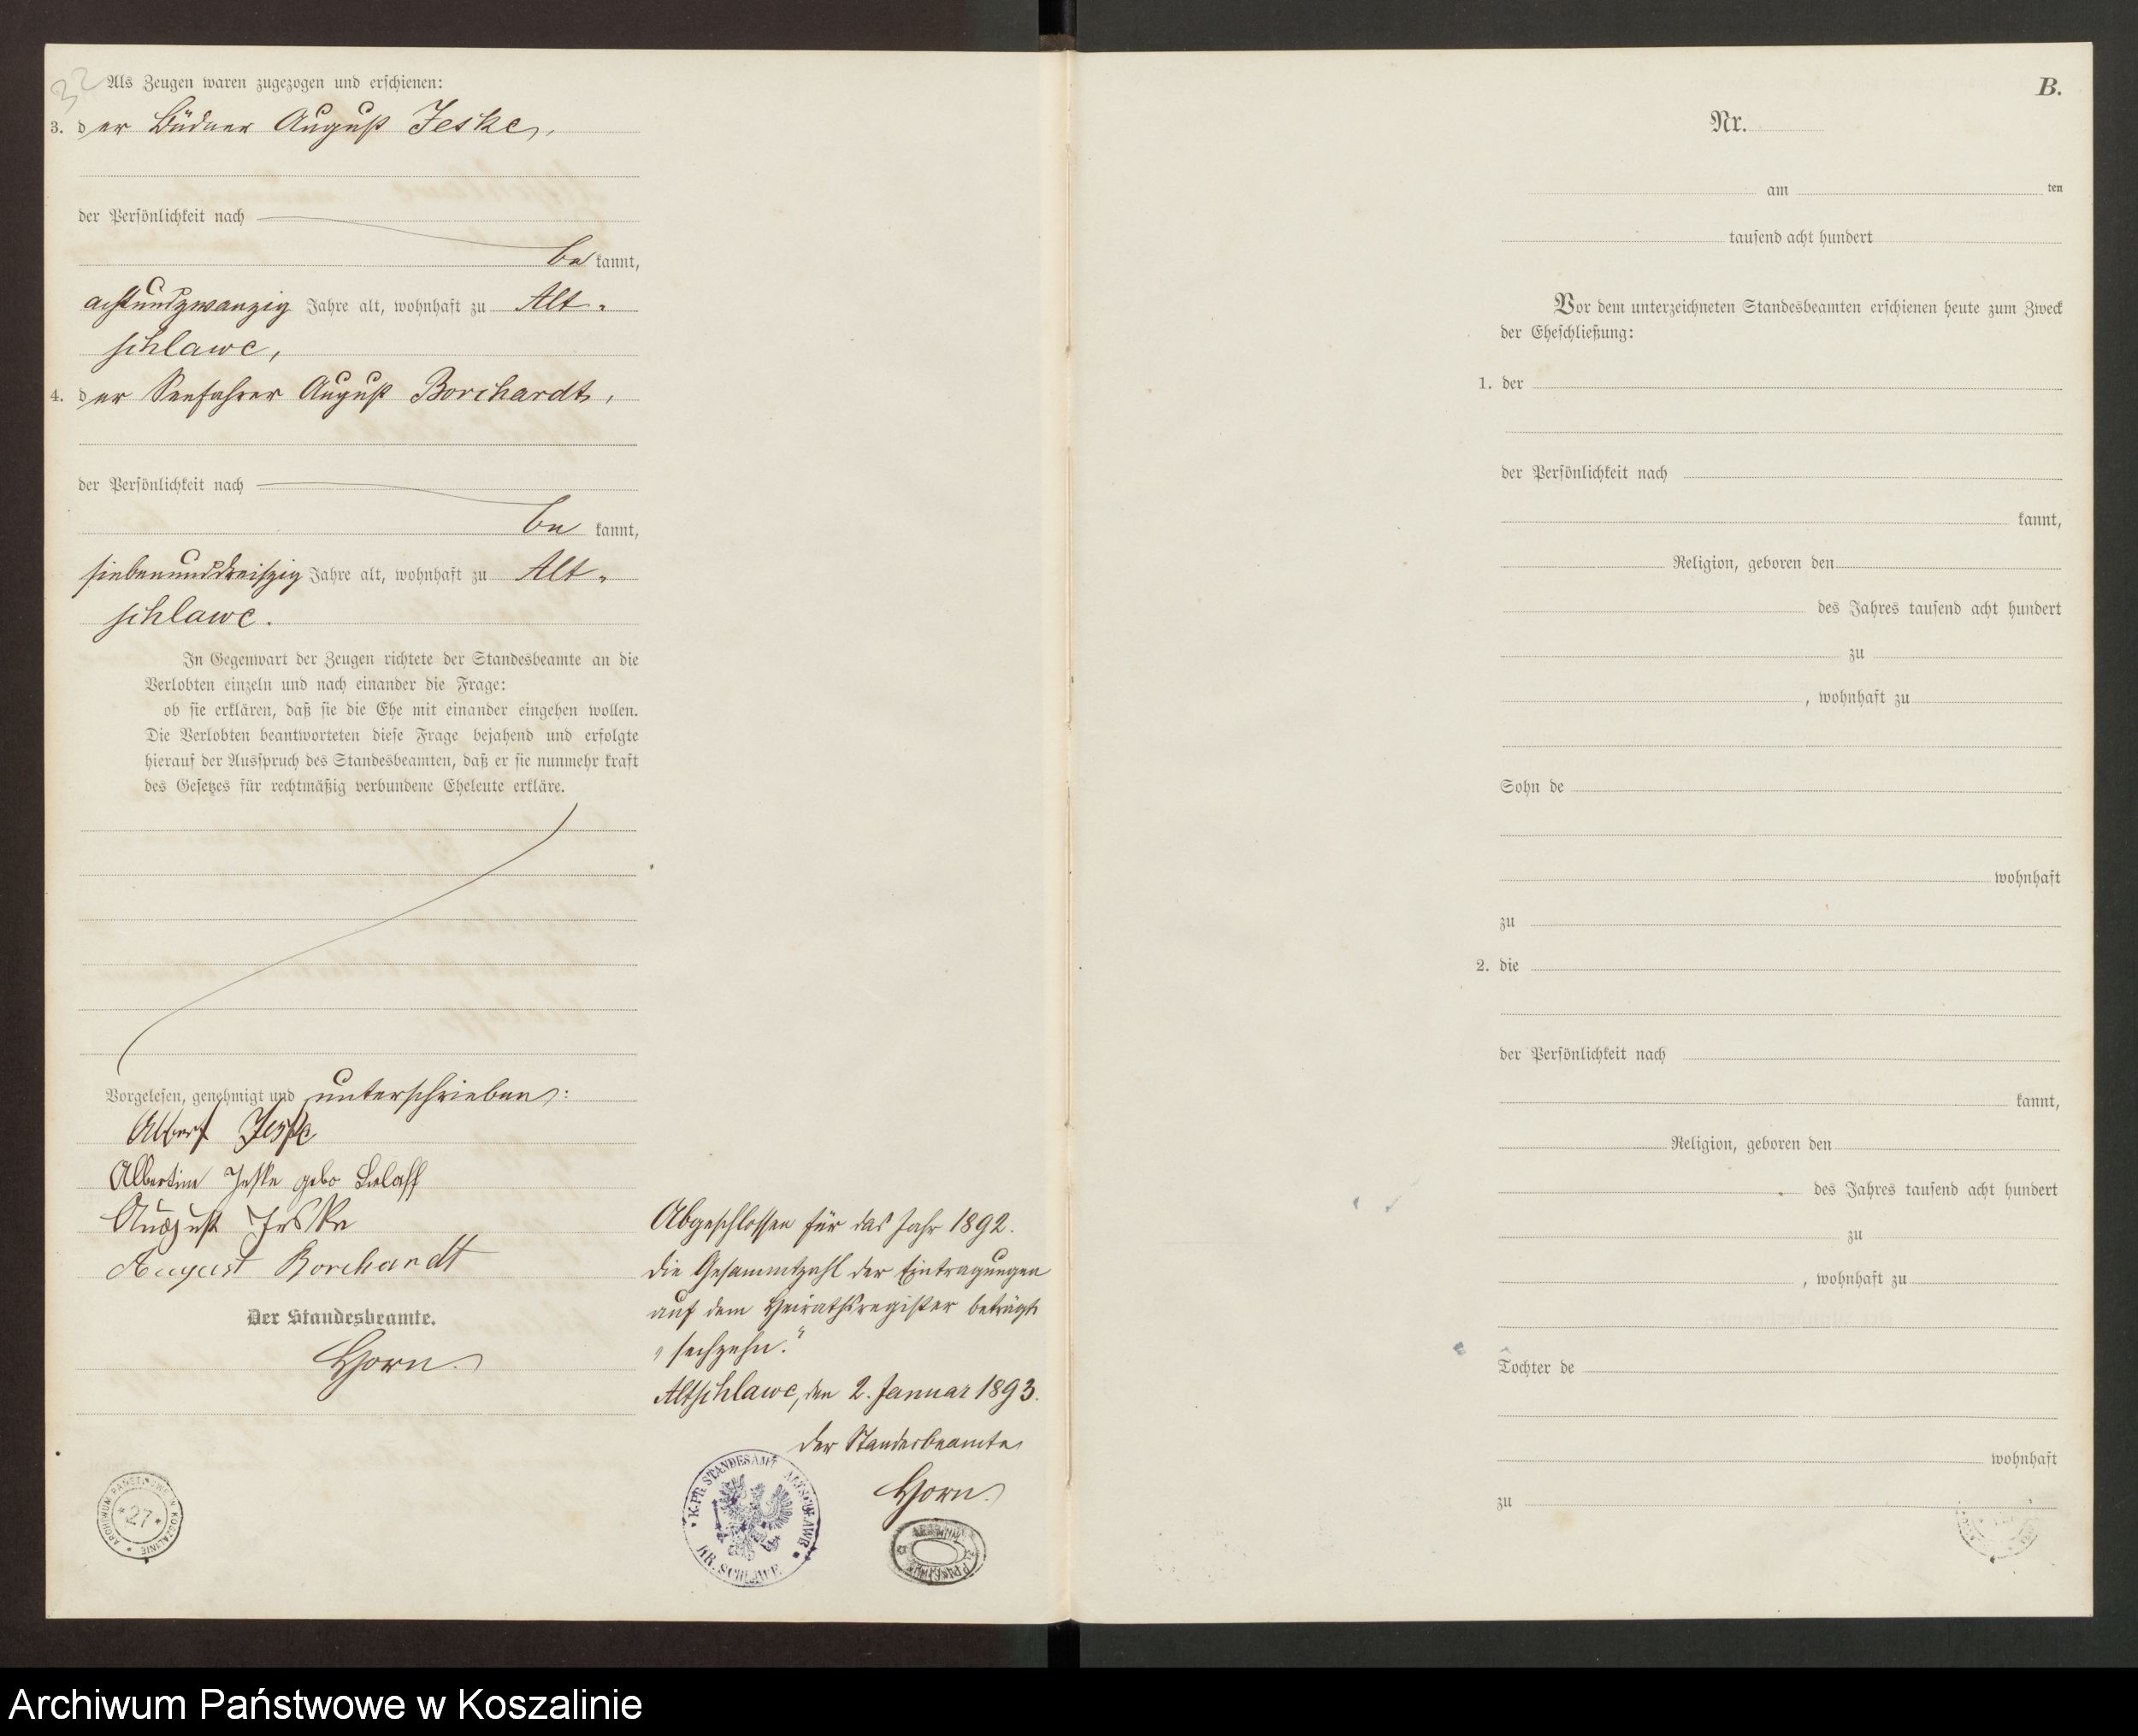 32
Als Zeugen waren zugezogen und erschienen:
3. der Büdner August Jeske,
der Persönlichkeit nach
be kannt,
achtundzwanzig Jahre alt, wohnhaft zu Alt-
schlawe,
4. der Seefahrer August Borchardt,
der Persönlichkeit nach
be kannt,
siebenunddreißig Jahre alt, wohnhaft zu Alt-
schlawe.
In Gegenwart der Zeugen richtete der Standesbeamte an die
Verlobten einzeln und nach einander die Frage:
ob sie erklären, daß sie die Ehe mit einander eingehen wollen.
Die Verlobten beantworteten diese Frage bejahend und erfolgte
hierauf der Ausspruch des Standesbeamten, daß er sie nunmehr kraft
des Gesetzes für rechtmäßig verbundene Eheleute erkläre.
Vorgelesen, genehmigt und unterschrieben:
Albert Jeske
Albertine Jeske gebo
August Jeske
August Borchardt
Der Standesbeamte.
Horn.
ARCHIWUM PAŃSTWOWE W KOSZALINIE
* 27 *
Abgeschlossen für das Jahr 1892.
Die Gesammtzahl der Eintragungen
auf dem Heirathsregister beträgt
„sechzehn."
Altschlawe, den 2. Januar 1893.
Der Standesbeamte
Horn.
K. PR. STANDESAMT ALTSCHLAWE
KR. SCHLAWE
B.
Nr.
am ten
tausend acht hundert
Vor dem unterzeichneten Standesbeamten erschienen heute zum Zweck
der Eheschließung:
1. der
der Persönlichkeit nach
kannt,
Religion, geboren den
des Jahres tausend acht hundert
zu
, wohnhaft zu
Sohn de
wohnhaft
zu
2. die
der Persönlichkeit nach
kannt,
Religion, geboren den
des Jahres tausend acht hundert
zu
, wohnhaft zu
Tochter de
wohnhaft
zu
Archiwum Państwowe w Koszalinie